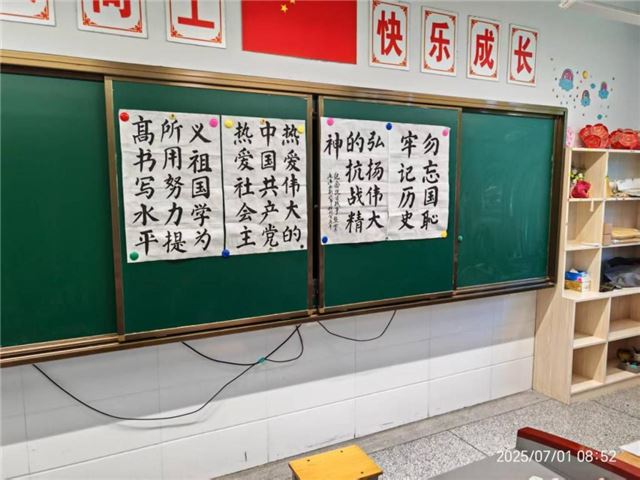 向上
快乐成长
勿忘国恥
牢记历史
弘扬伟大
的抗战精
神
热爱伟大的
中国共产党
热爱社会主
义祖国学为
所用努力提
髙书写水平
2025/07/01 08:52